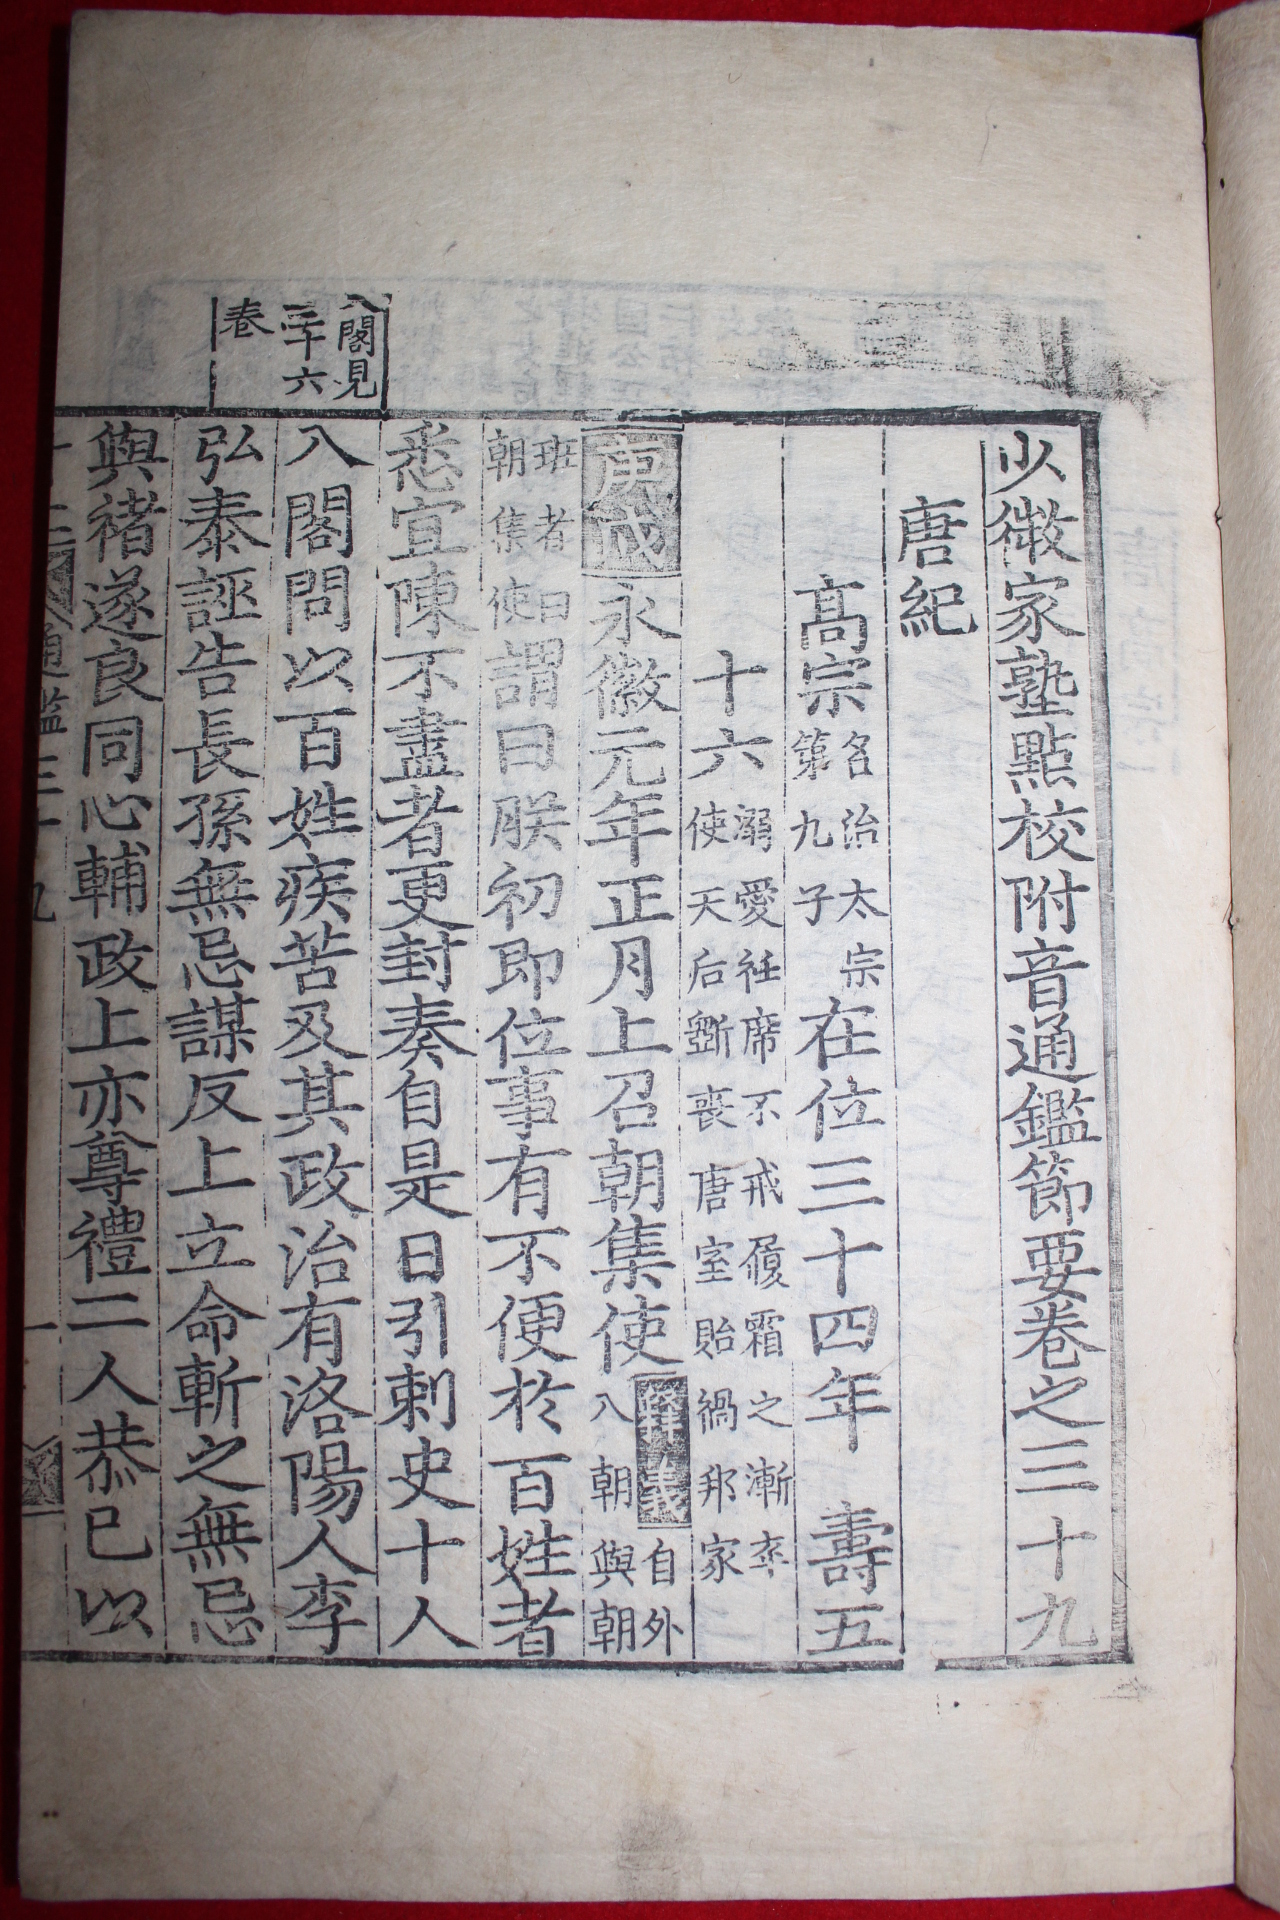 少微家塾點校附音通鑑節要卷之三十九
唐紀
高宗名治太宗第九子在位三十四年 壽五
十六溺愛衽席不戒履霜之漸卒使天后斲喪唐室貽禍邦家
庚戌永徽元年正月上召朝集使釋義自外入朝與朝
班者曰朝集使謂曰朕初即位事有不便於百姓者
悉宜陳不盡者更封奏自是日引刺史十人
入閤問以百姓疾苦及其政治有洛陽人李
弘泰誣告長孫無忌謀反上立命斬之無忌
與褚遂良同心輔政上亦尊禮二人恭已以
入閤見
三十六
卷
通鑑三十九
一